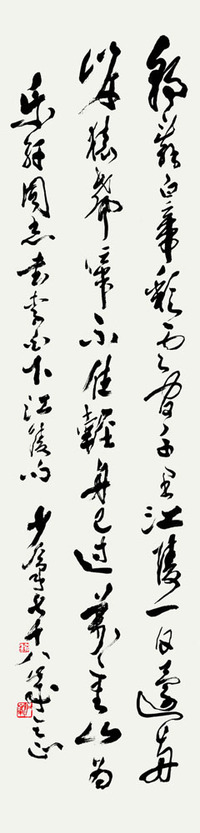 朝辞白帝彩云間千里江陵一日還兩
岸猿聲啼不住輕舟已過萬重山为
同志書李白下江陵 少七十八歲